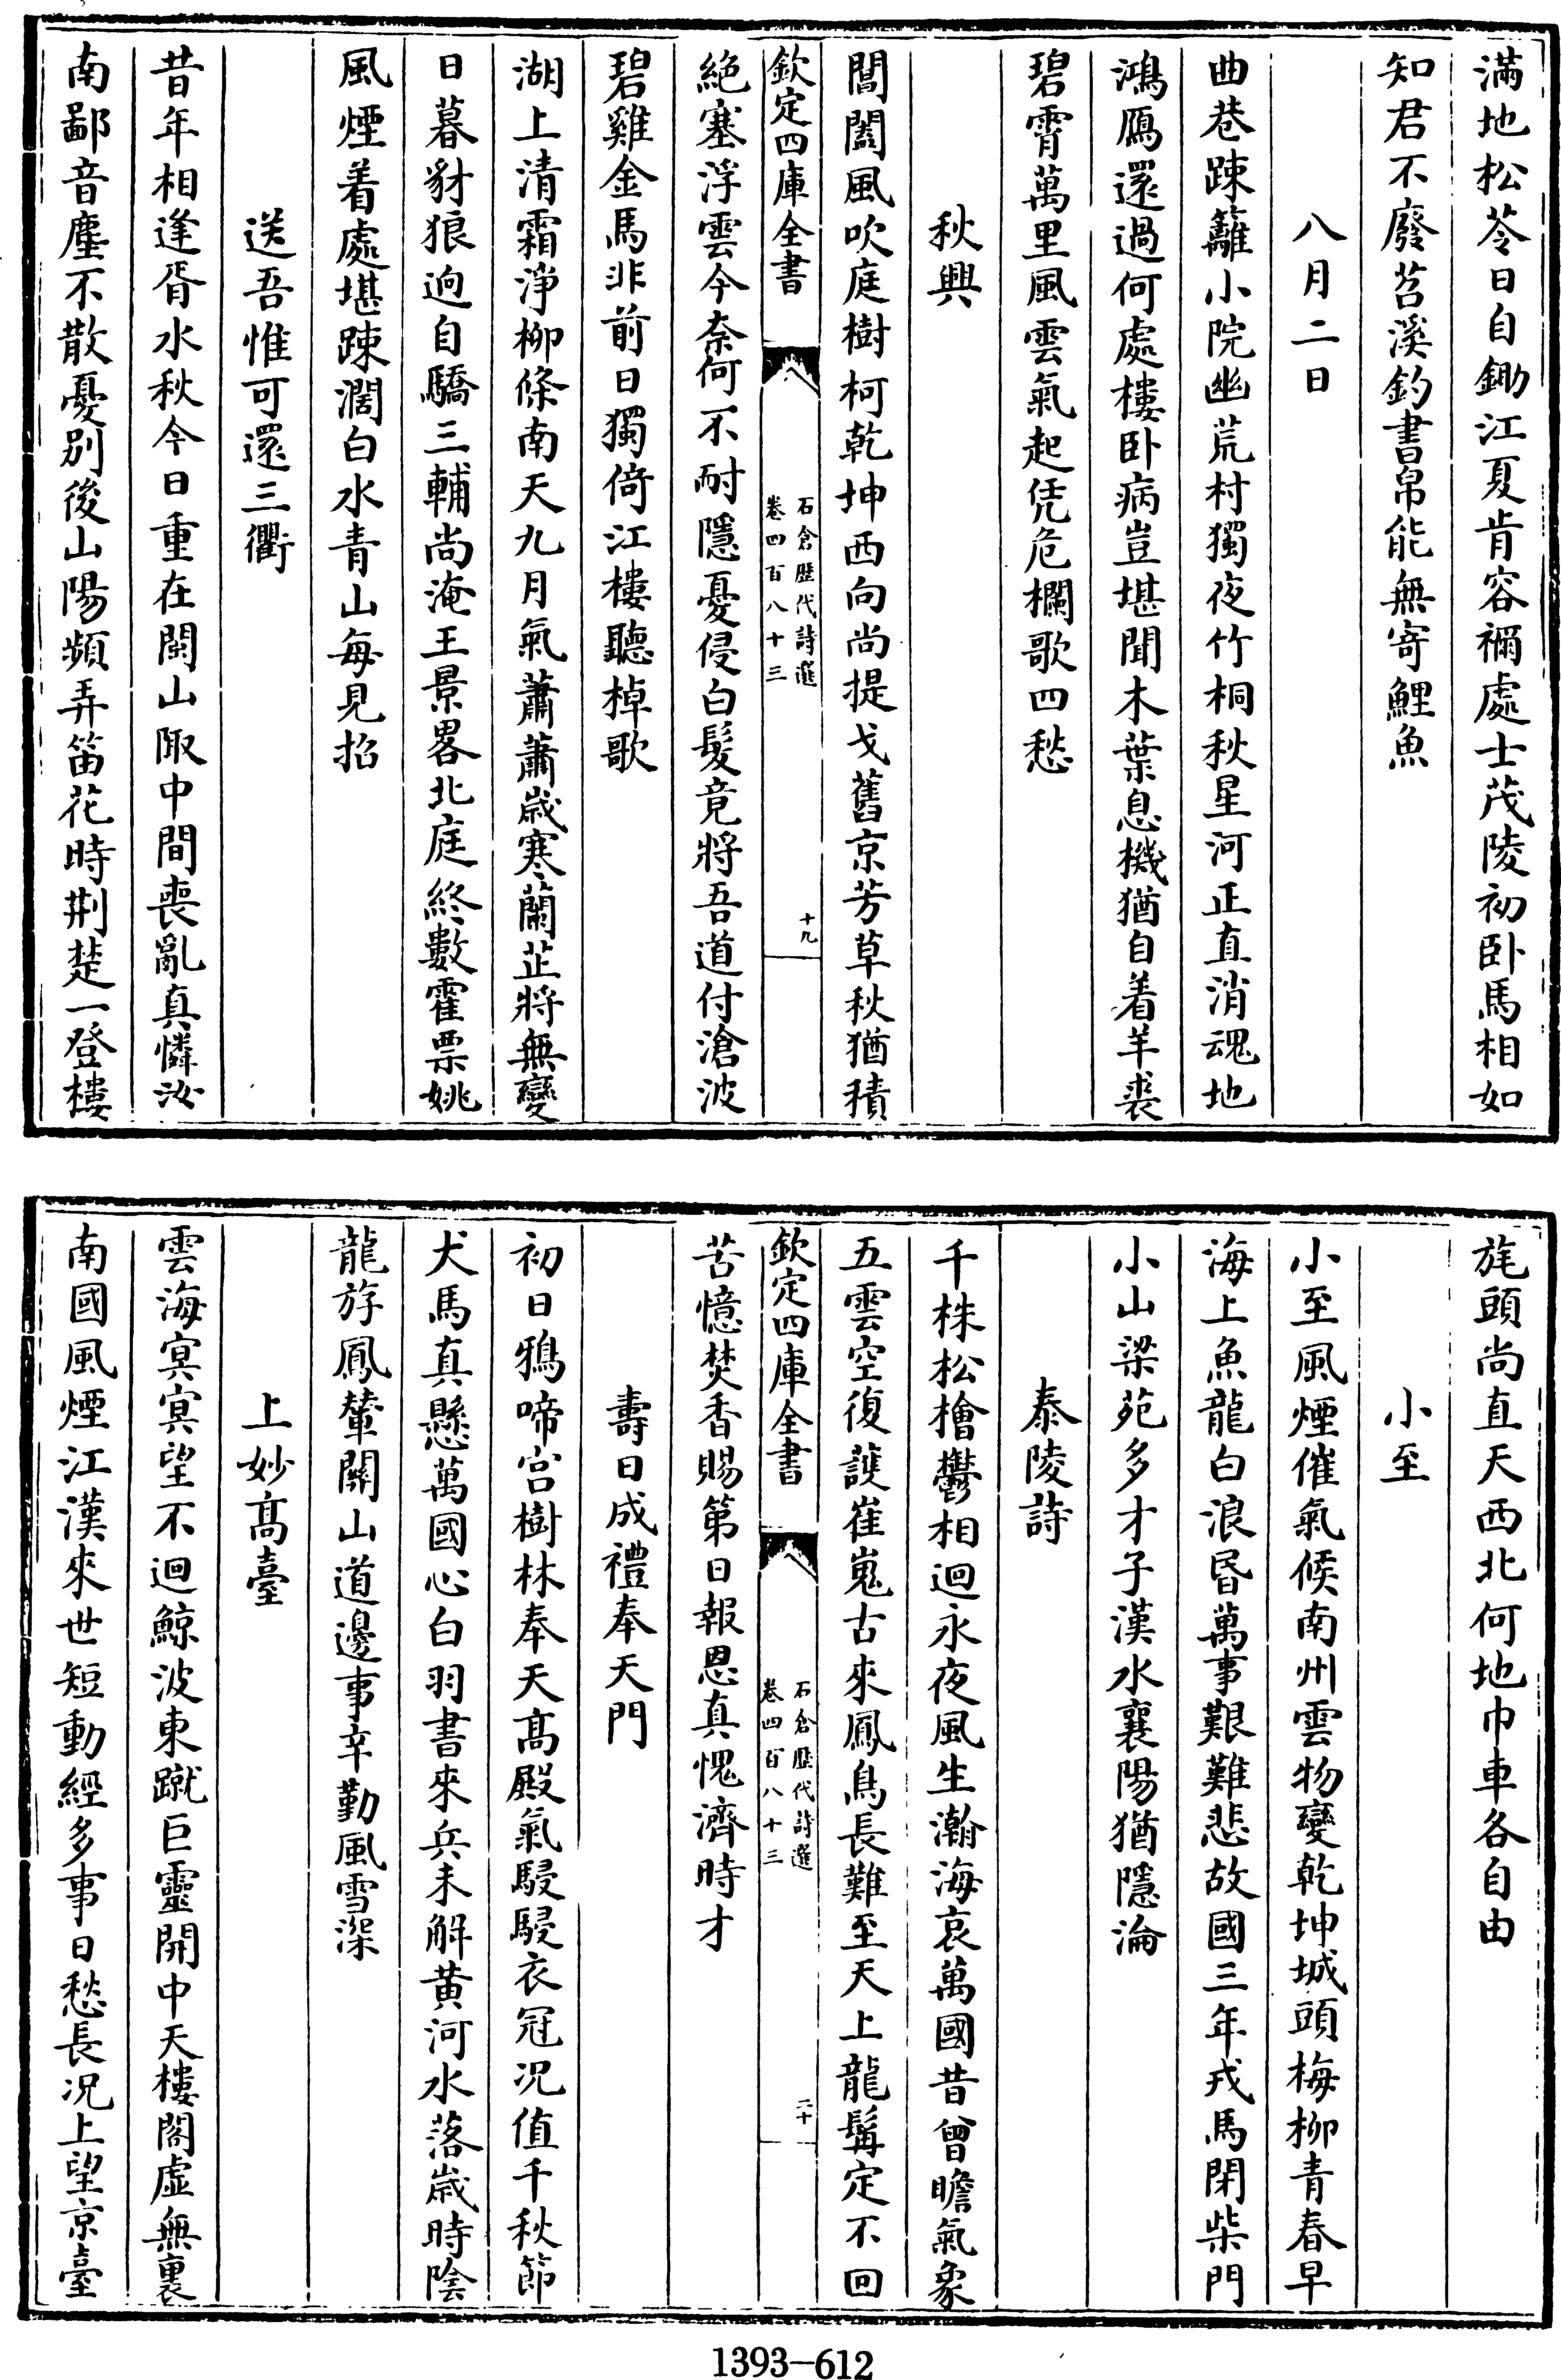 滿地松苓日自鋤江夏肯容禰處士茂陵初卧馬相如
知君不廢苕溪釣書帛能無寄鯉魚
八月二日
曲巷踈籬小院幽荒村獨夜竹桐秋星河正直消魂地
鴻鴈還過何處樓卧病豈堪聞木葉息機猶自着羊裘
碧霄萬里風雲氣起凭危欄歌四愁
秋興
閶闔風吹庭樹柯乾坤西向尚提戈舊京芳草秋猶積
欽定四庫全書
石倉歴代詩選
卷四百八十三
十九
絶塞浮雲今奈何不耐隱憂侵白髪竟將吾道付滄波
碧雞金馬非前日獨倚江樓聽棹歌
湖上清霜淨柳條南天九月氣蕭蕭歲寒蘭芷將無變
日暮豺狼逈自驕三輔尚淹王景畧北庭終數霍票姚
風煙着處堪踈濶白水青山每見招
送吾惟可還三衢
昔年相逢胥水秋今日重在閩山陬中間喪亂真憐汝
南鄙音塵不散憂别後山陽頻弄笛花時荆楚一登樓
旄頭尚直天西北何地巾車各自由
小至
小至風煙催氣候南州雲物變乾坤城頭梅柳青春早
海上魚龍白浪昏萬事艱難悲故國三年戎馬閉柴門
小山梁苑多才子漢水襄陽猶隱淪
泰陵詩
千株松檜鬱相迴永夜風生瀚海哀萬國昔曾瞻氣象
五雲空復護崔嵬古來鳳鳥長難至天上龍髯定不回
欽定四庫全書
石倉歴代詩選
卷四百八十三
二十
苦憶焚香賜第日報恩真愧濟時才
壽日成禮奉天門
初日鴉啼宫樹林奉天髙殿氣駸駸衣冠况值千秋節
犬馬真懸萬國心白羽書來兵未解黄河水落歲時陰
龍斿鳳輦關山道邊事辛勤風雪深
上妙髙臺
雲海㝠㝠望不迴鯨波東蹴巨靈開中天樓閣虚無裏
南國風煙江漢來世短動經多事日愁長况上望京臺
1393-612